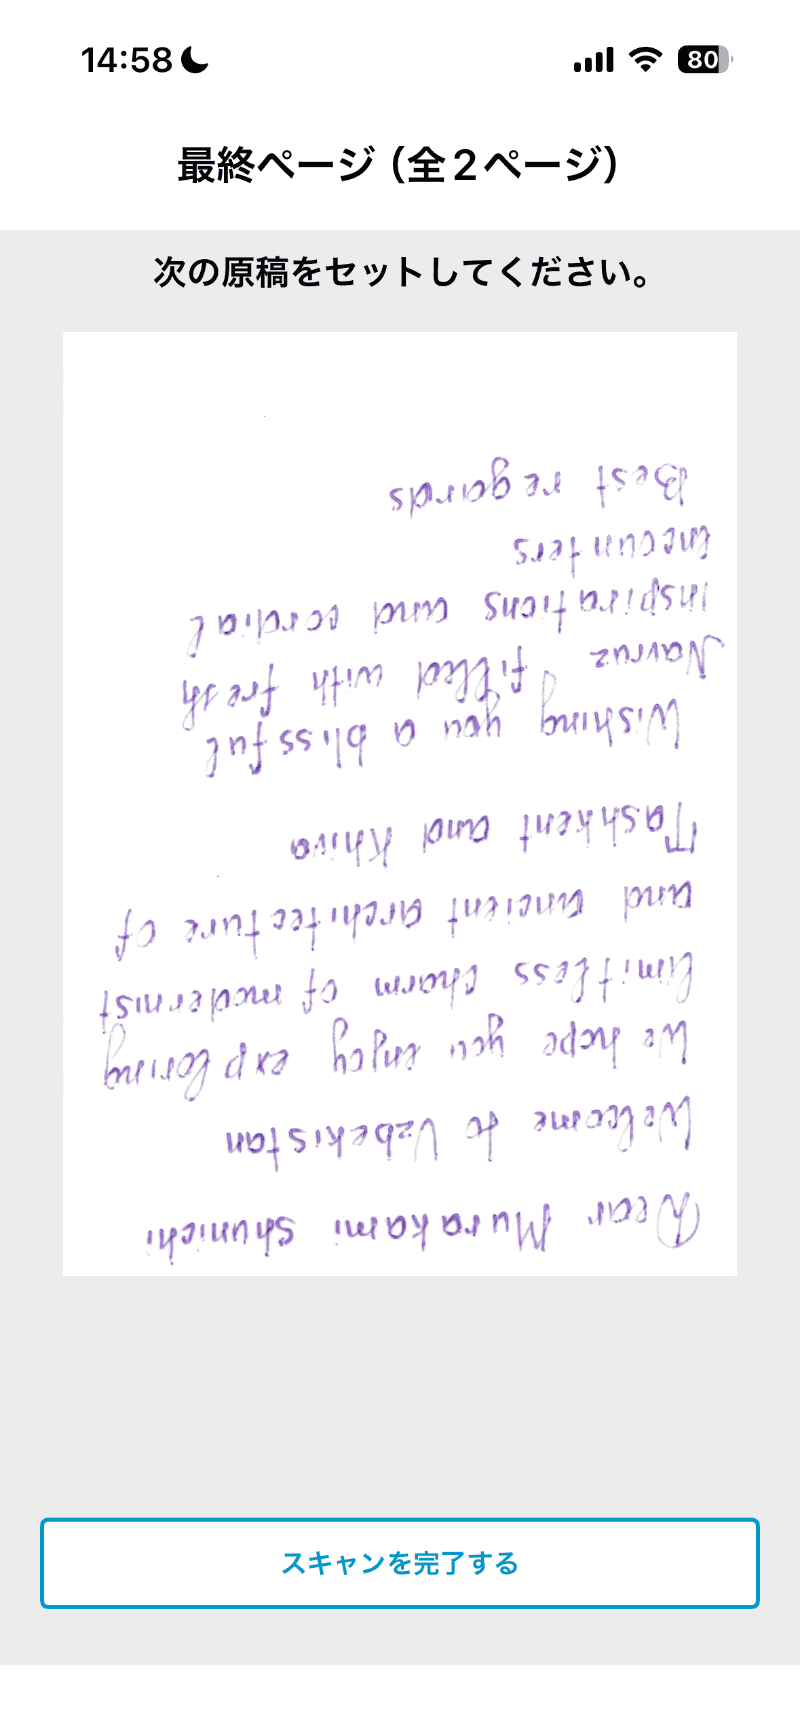 14:58
80
最終ページ（全2ページ）
次の原稿をセットしてください。
Dear Murakami Shunichi
Welcome to Uzbekistan
We hope you enjoy exploring
limitless charm of modernist
and ancient architecture of
Tashkent and Khiva
Wishing you a blissful
Navruz filled with fresh
inspirations and cordial
encounters
Best regards
スキャンを完了する